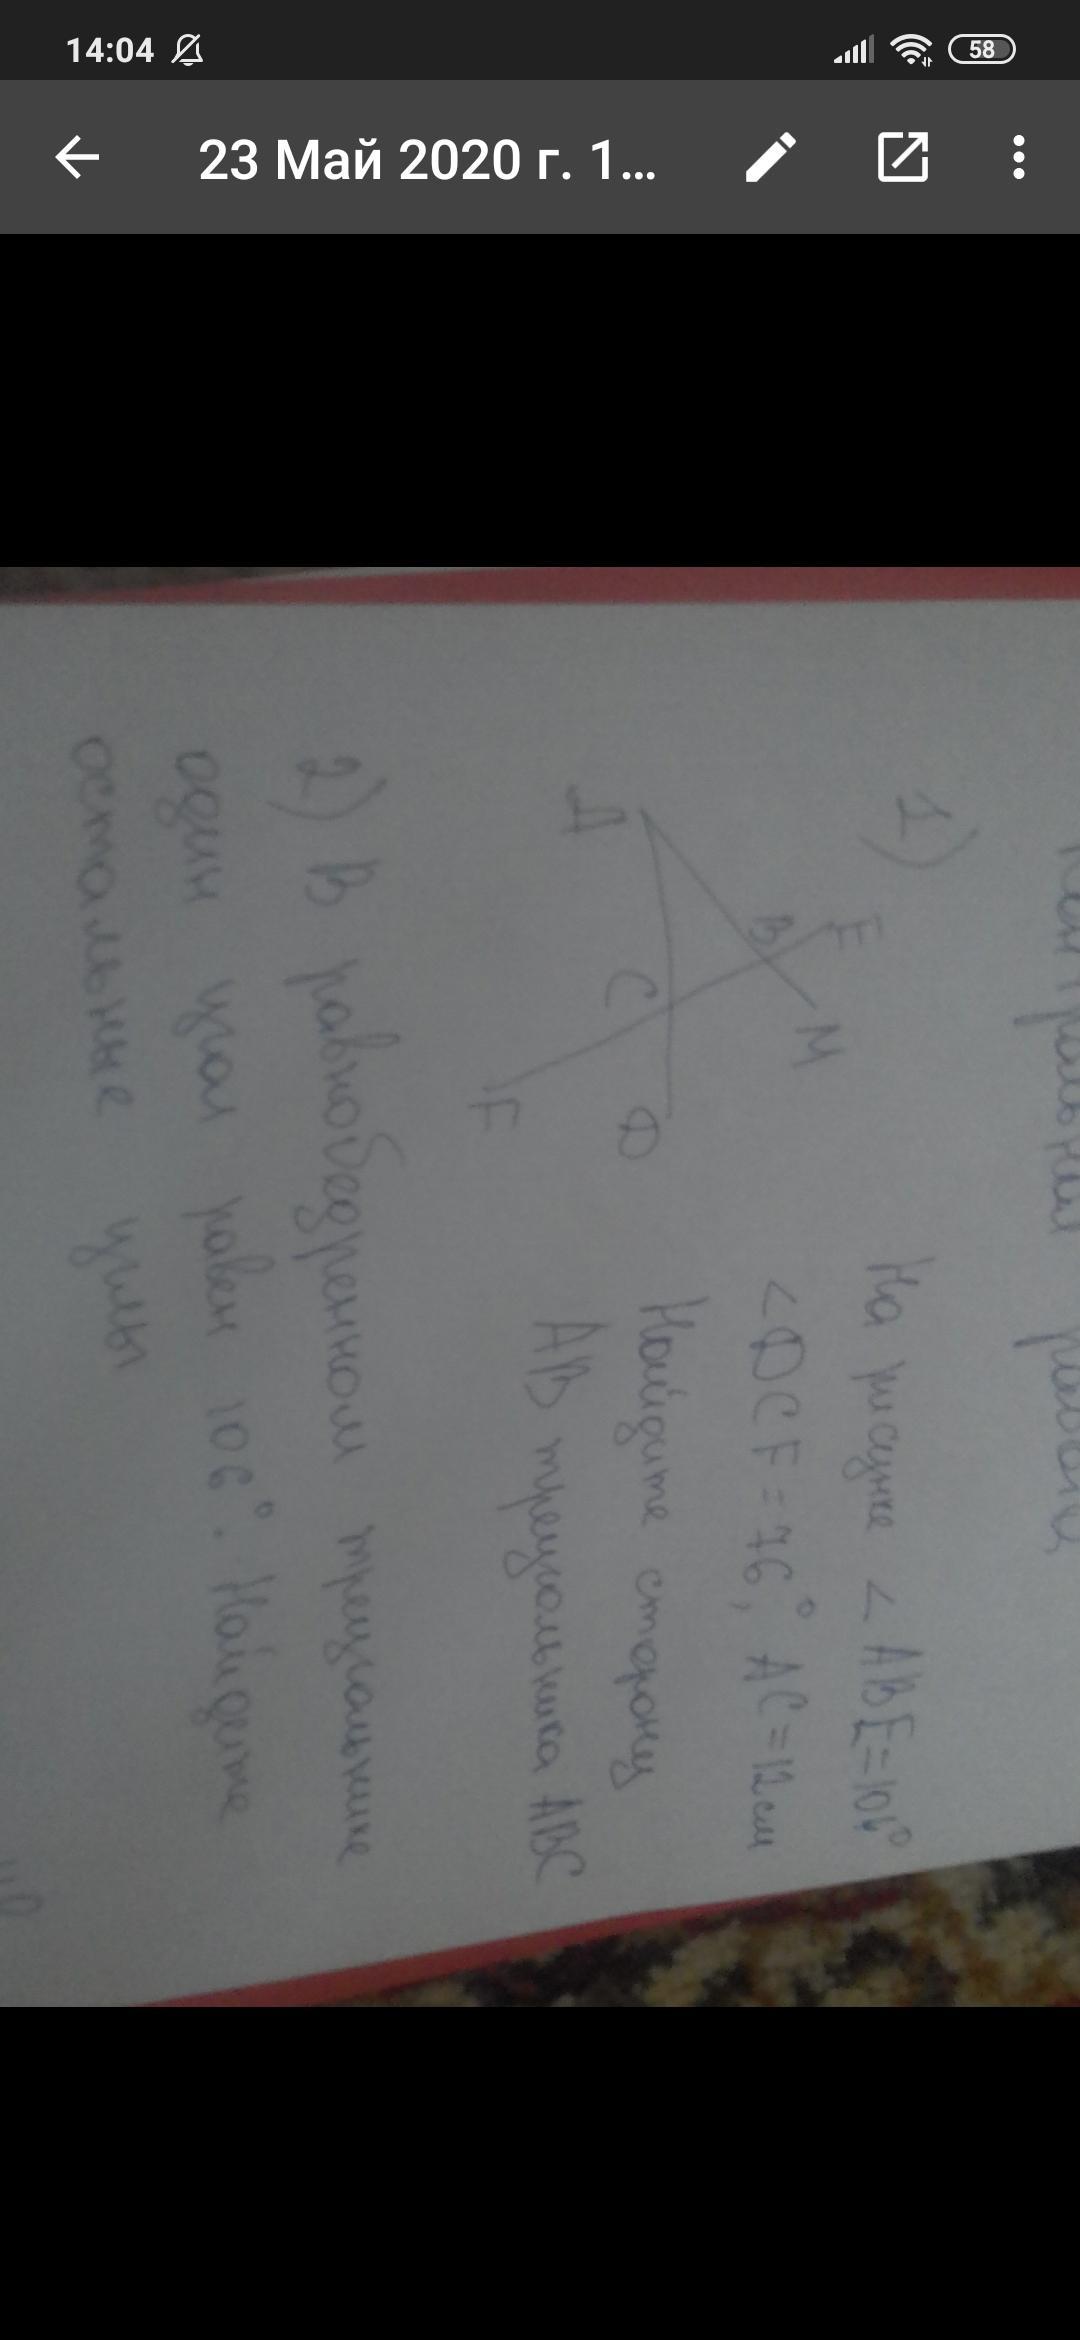 14:04
58
23 Май 2020 г. 1...
1)
E
M
B
A
C
D
F
На рисунке < ABE=106°
<DCF=76°, AC=12см
Найдите сторону
AB треугольника ABC
2) В равнобедренном треугольнике
один угол равен 106°. Найдите
остальные углы